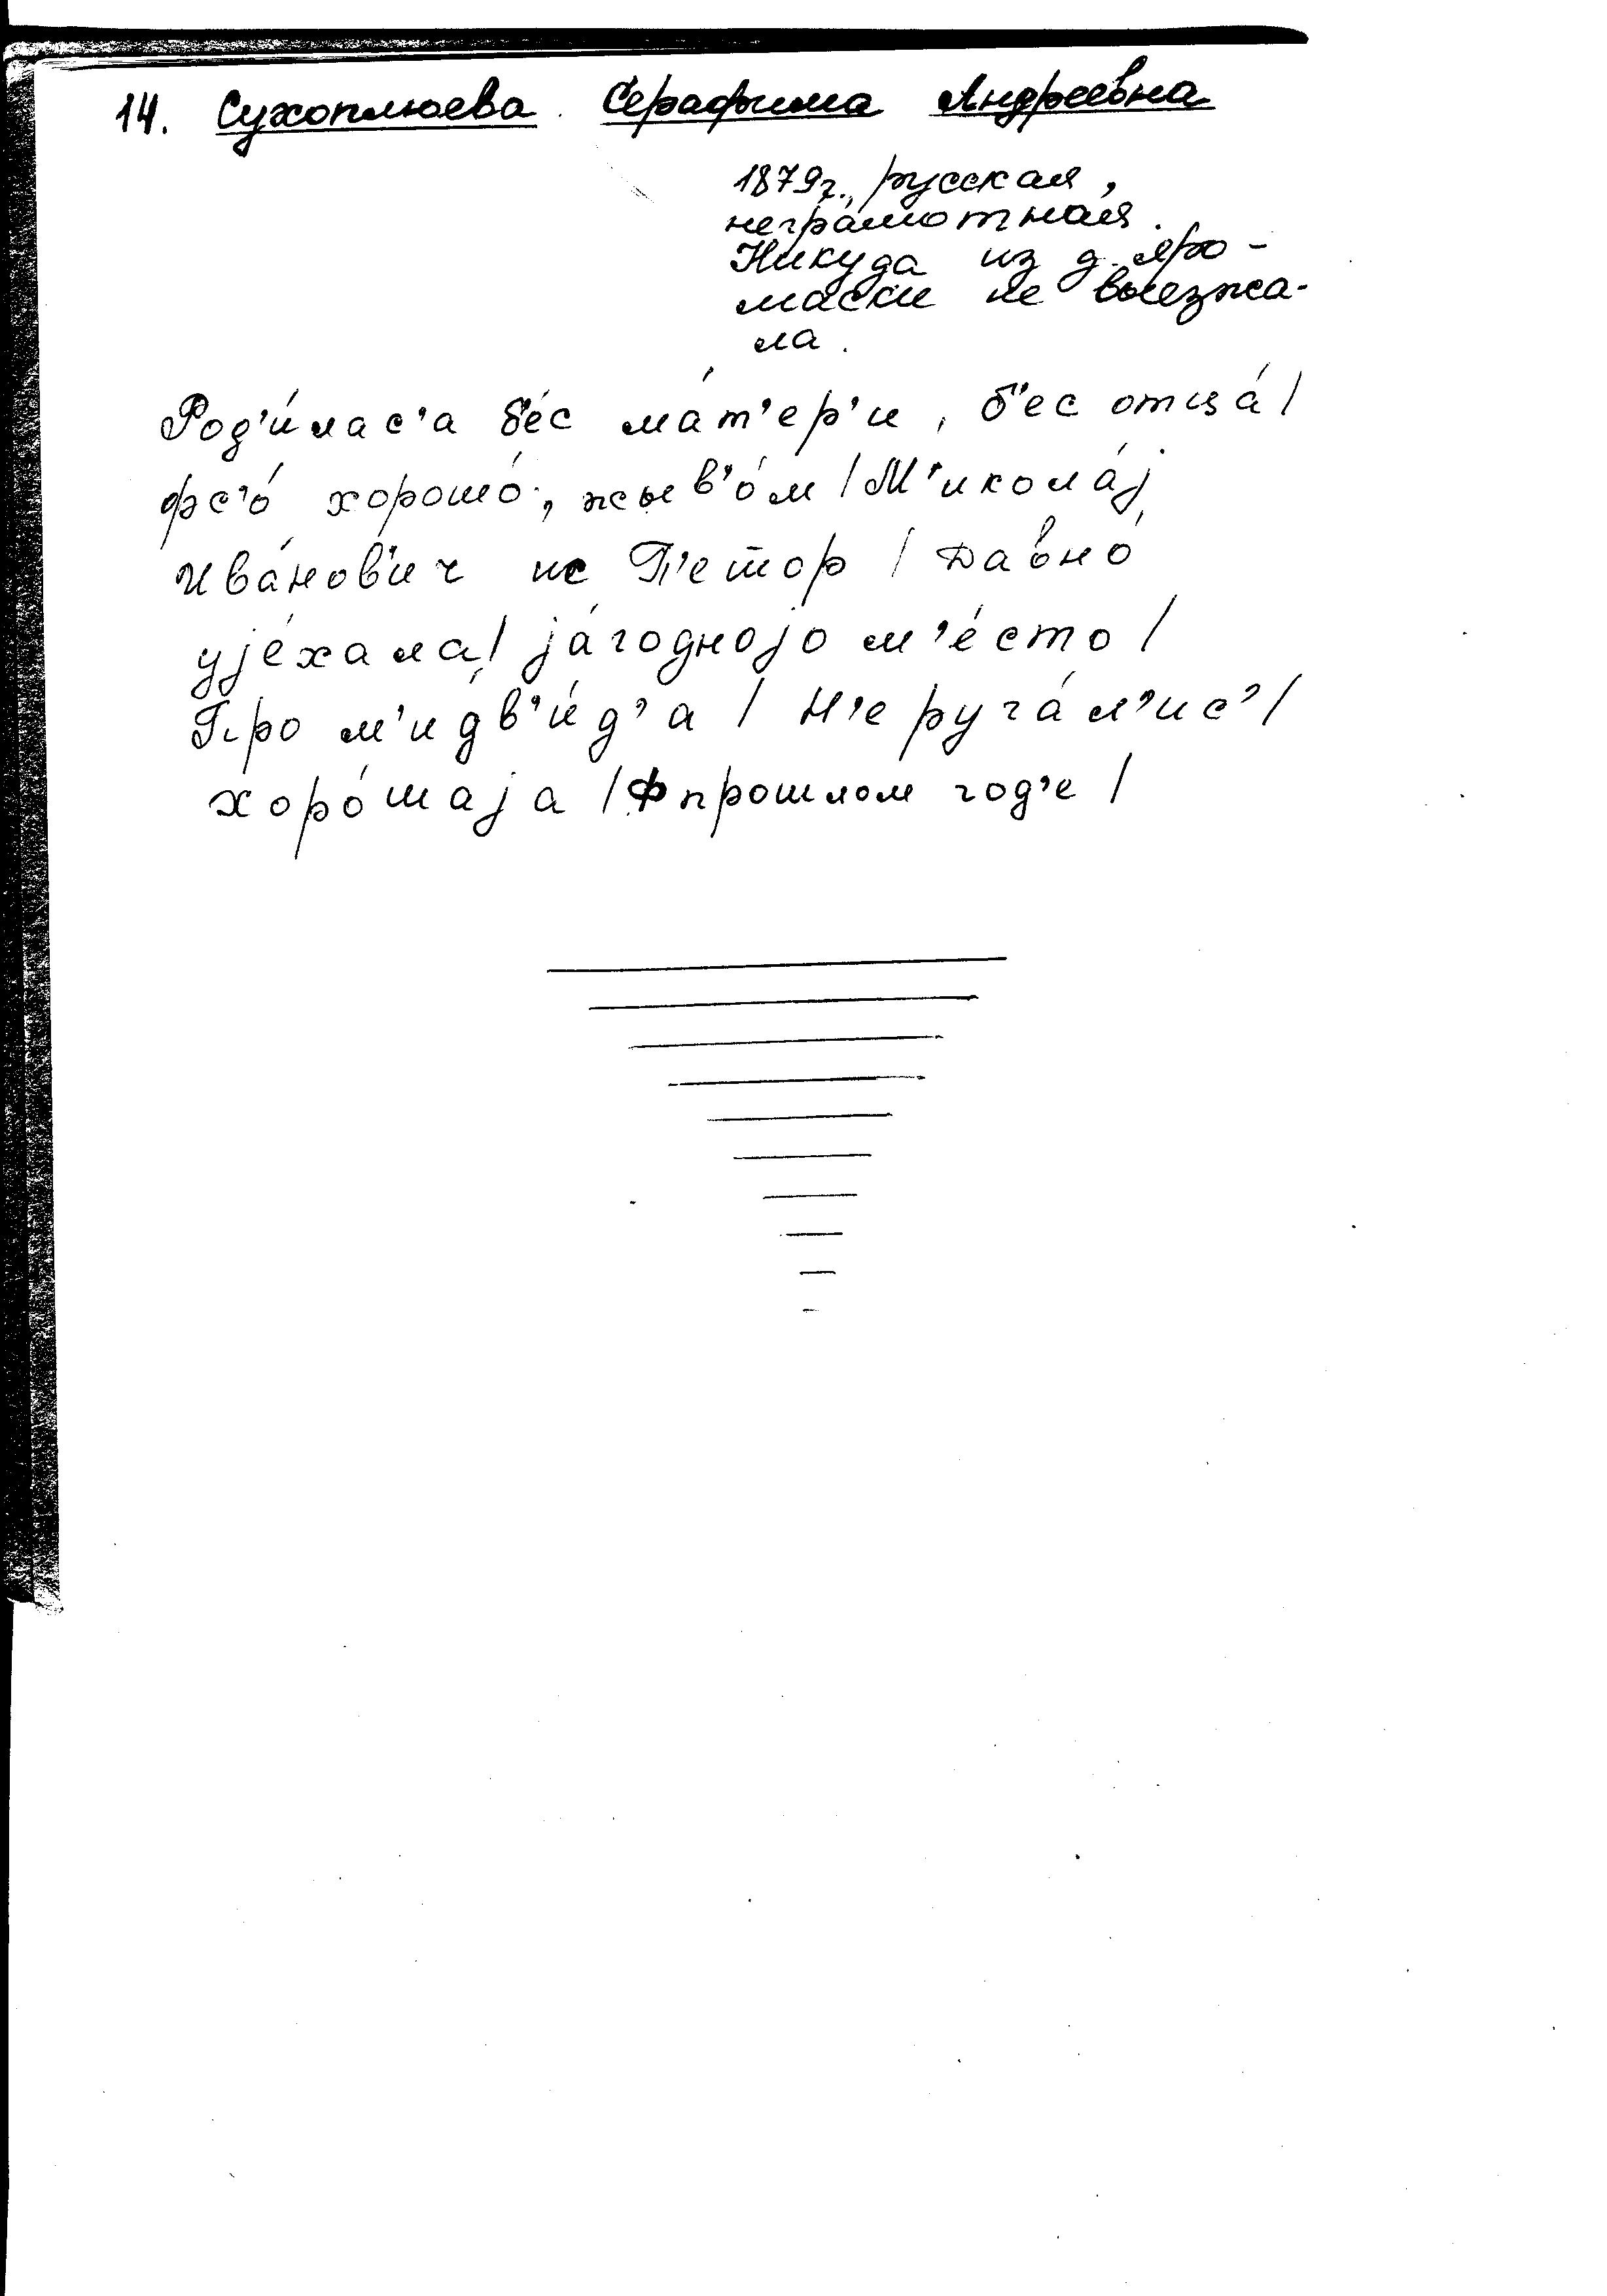 14. Сухоплюева Серафима Андреевна
1879г., русская,
неграмотная.
Никуда из д. Яро-
маски не выезжа-
ла.
Род'и́лас'а б'ес ма́т'ер'и, б'ес отца́/
фс'о́ хорошо́, жыв'о́м/ М'икола́j
Ива́нов'ич ис П'етор/ Давно́
уjе́хала/ jа́годноjо м'е́сто/
Про м'идв'и́д'а/ Н'е руга́л'ис'/
хоро́шаjа/ Ф прошлом год'е/